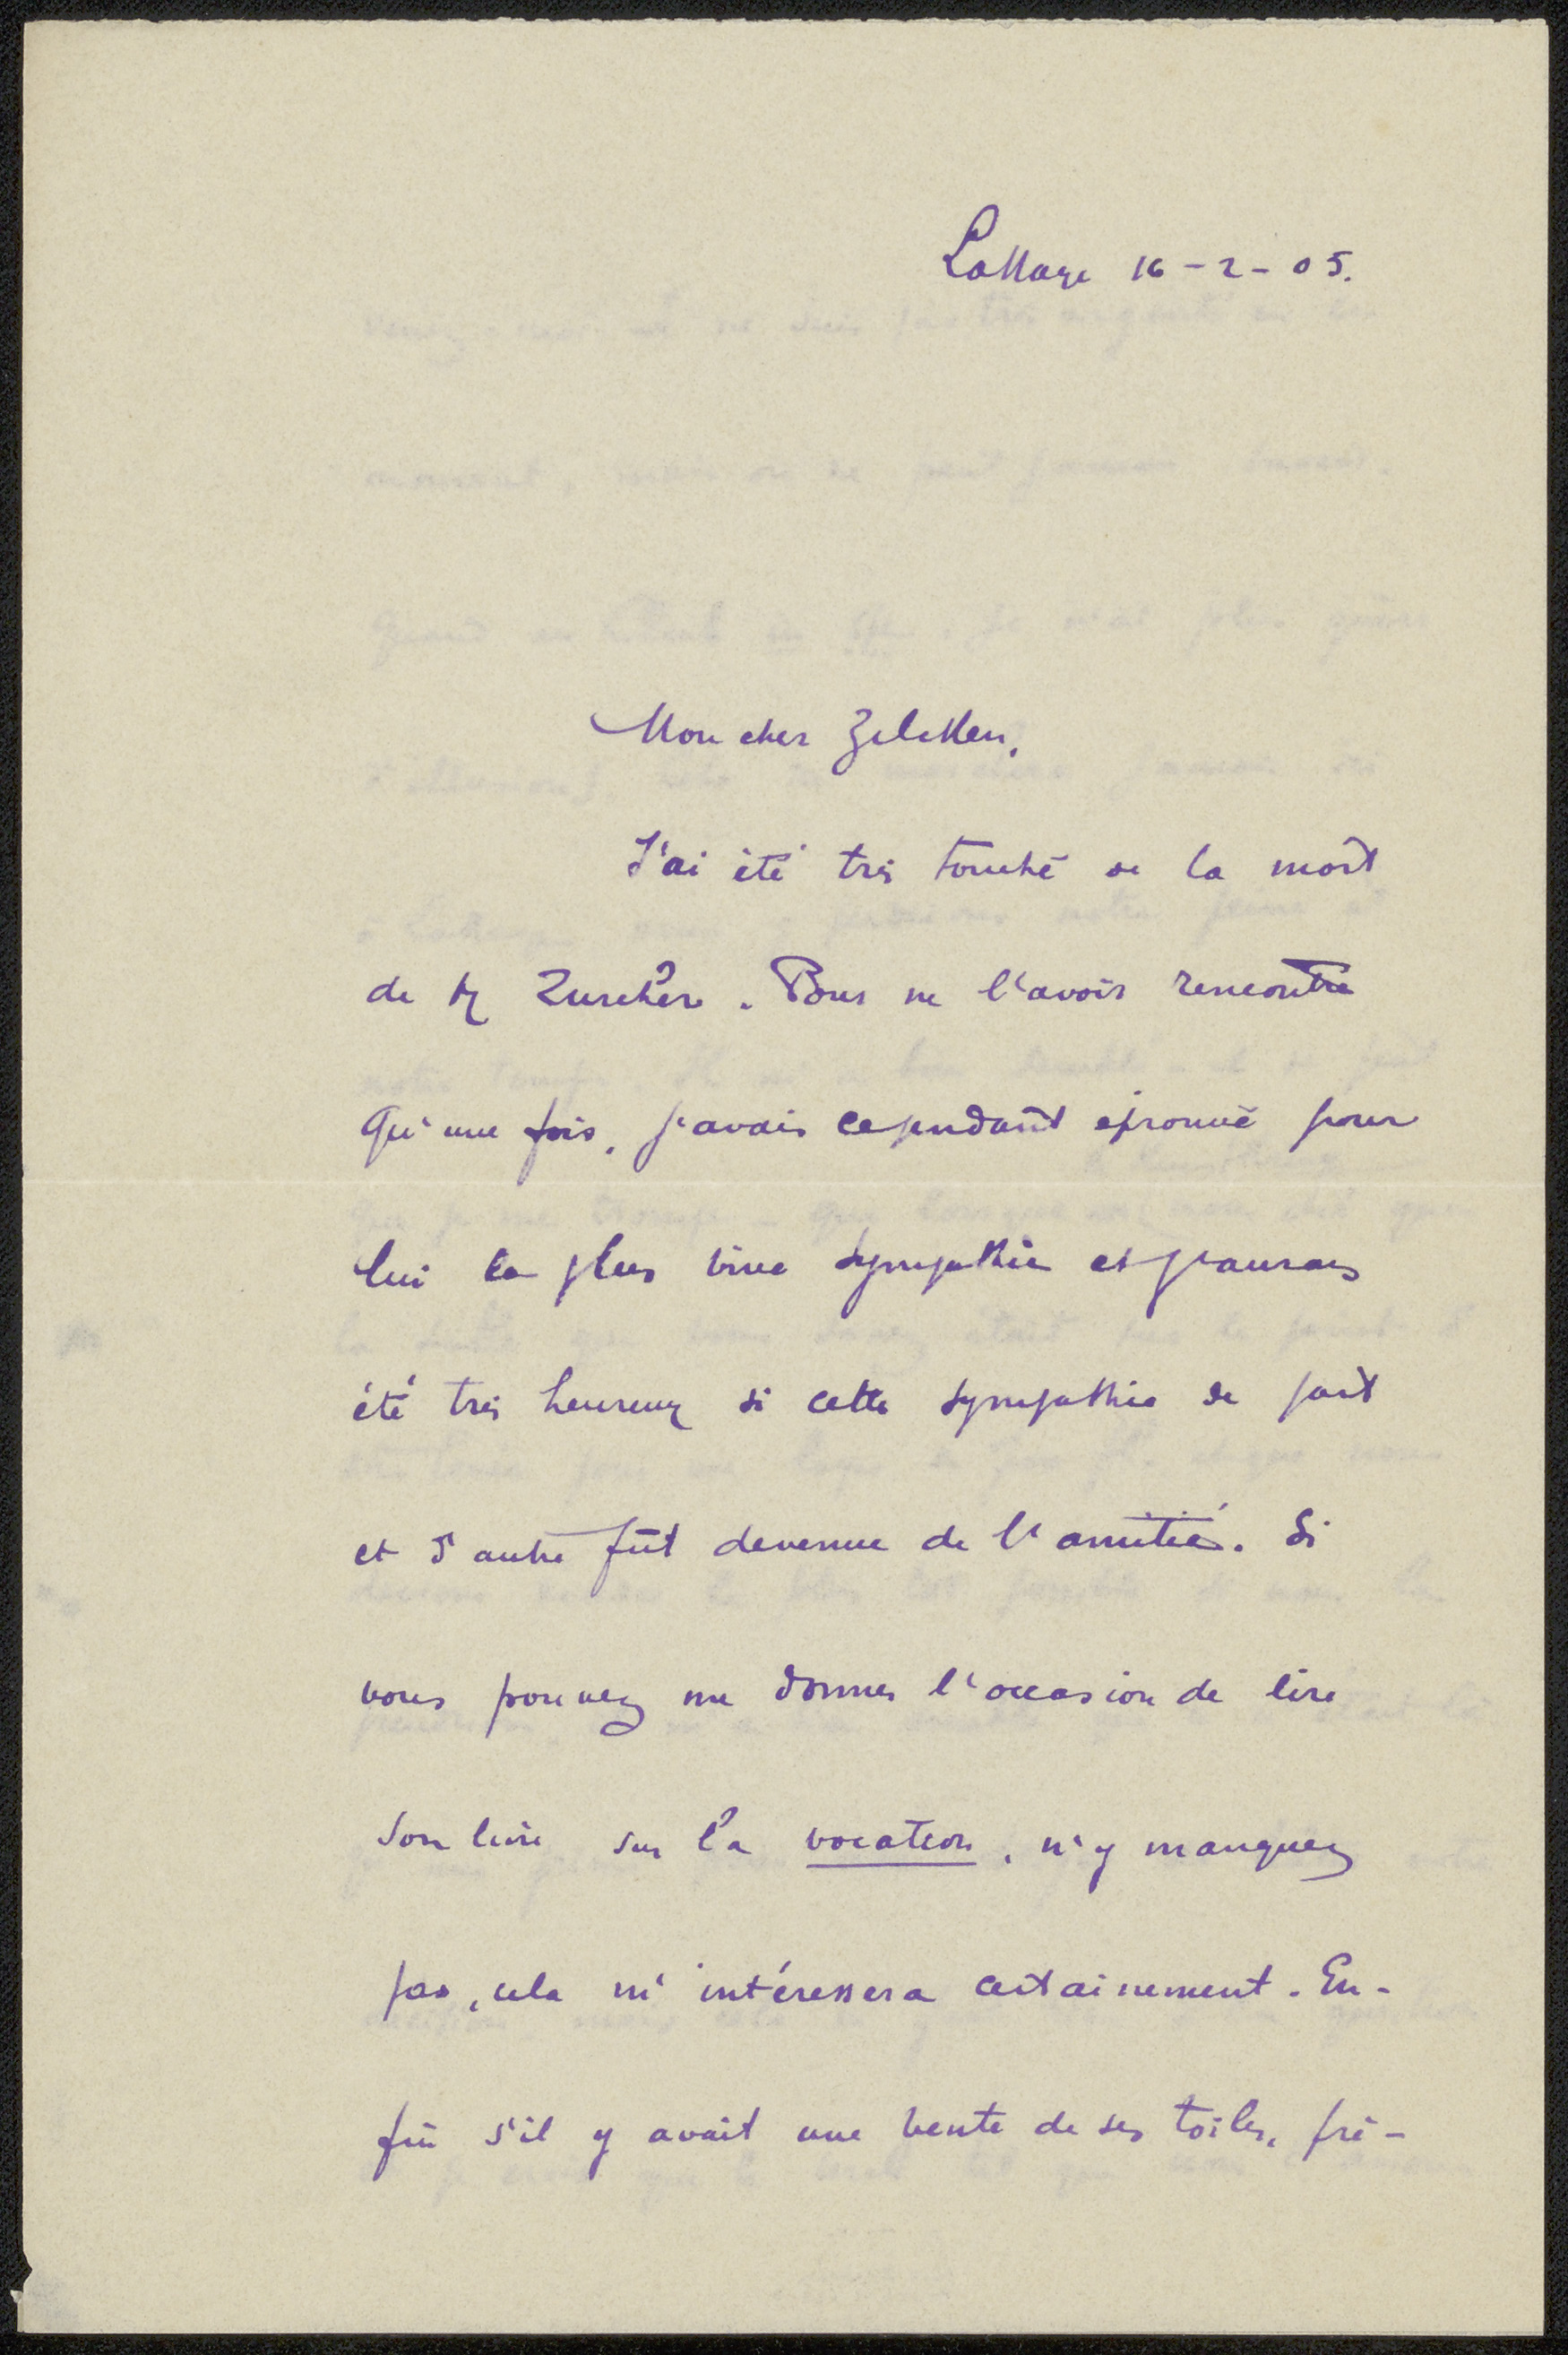 LaHaye 16-2-05.
Mon cher Zilcken,
J'ai été très touché de la mort
de M Zurcher. Pour ne l'avoir rencontré
qu'une fois, j'avais cependant éprouvé pour
lui la plus vive sympathie et j'aurais
été très heureux si cette sympathie de part
et d'autre fût devenue de l'amitié. Si
vous pouvez me donner l'occasion de lire
son livre sur la vocation, n'y manquez
pas, cela m'intéressera certainement. En-
fin s'il y avait une vente de ses toiles, pré-